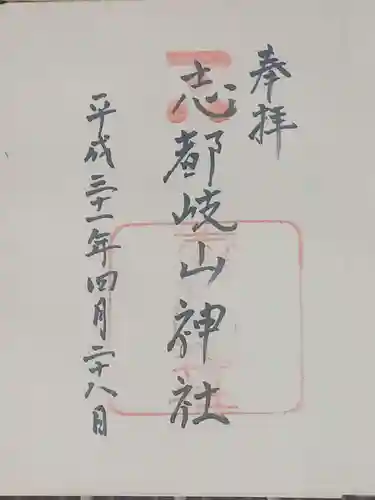 奉拝
志都岐山神社
平成三十一年四月二十八日